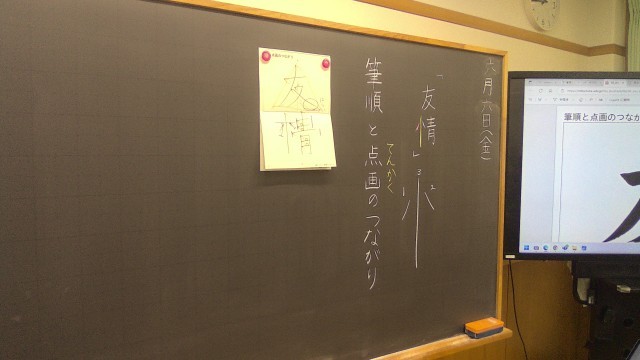 六月六日(金)
「友情」
3
1
2
筆順と点画のつながり
てんかく
友
情
筆順と点画のつなが